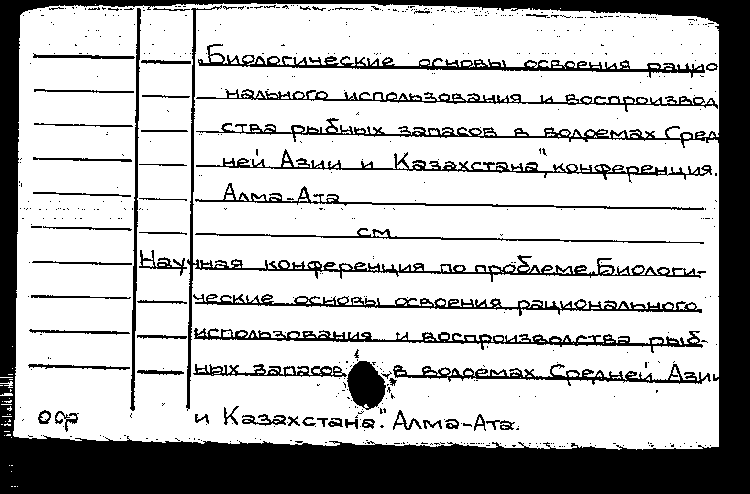 „Биологические основы освоения рацио
нального использования и воспроизвод
ства рыбных запасов в водоемах Сред
ней Азии и Казахстана", конференция.
Алма-Ата.
см.
Научная конференция по проблеме „Биологи-
ческие основы освоения рационального
использования и воспроизводства рыб-
ных запасов в водоемах Средней Азии
и Казахстана". Алма-Ата.
оор